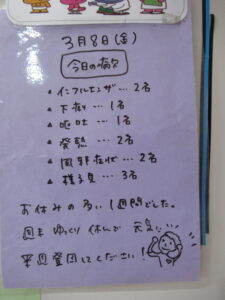 3月8日(金)
今日の病欠
▲ インフルエンザ… 2名
▲ 下痢 … 1名
▲ 嘔吐 … 1名
▲ 発熱 … 2名
▲ 風邪症状 … 2名
▲ 様子見 … 3名
お休みの多い1週間でした。
週末ゆっくり休んで 元気に
来週登園してください!